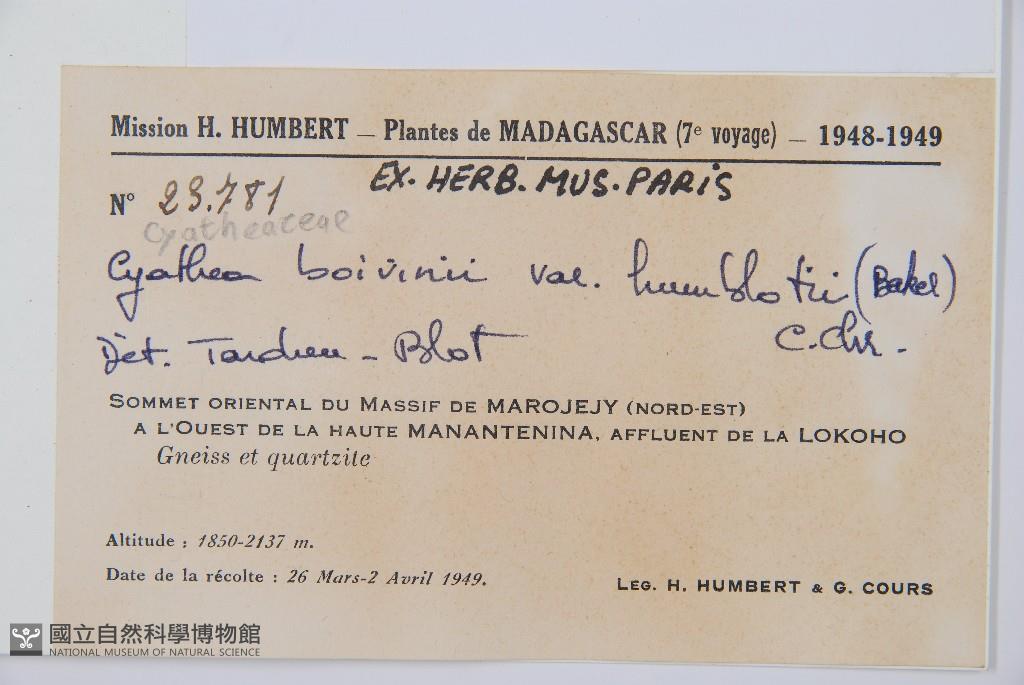 Mission H. HUMBERT — Plantes de MADAGASCAR (7e voyage) — 1948-1949
EX. HERB. MUS. PARIS
N° 23.781
Cyatheaceae
Cyathea boivinii var. humblotii (Baker)
C. Chr.
Dèt. Tardieu - Blot
SOMMET ORIENTAL DU MASSIF DE MAROJEJY (NORD-EST)
A L'OUEST DE LA HAUTE MANANTENINA, AFFLUENT DE LA LOKOHO
Gneiss et quartzite
Altitude : 1850-2137 m.
Date de la récolte : 26 Mars-2 Avril 1949.
LEG. H. HUMBERT & G. COURS
國立自然科學博物館
NATIONAL MUSEUM OF NATURAL SCIENCE